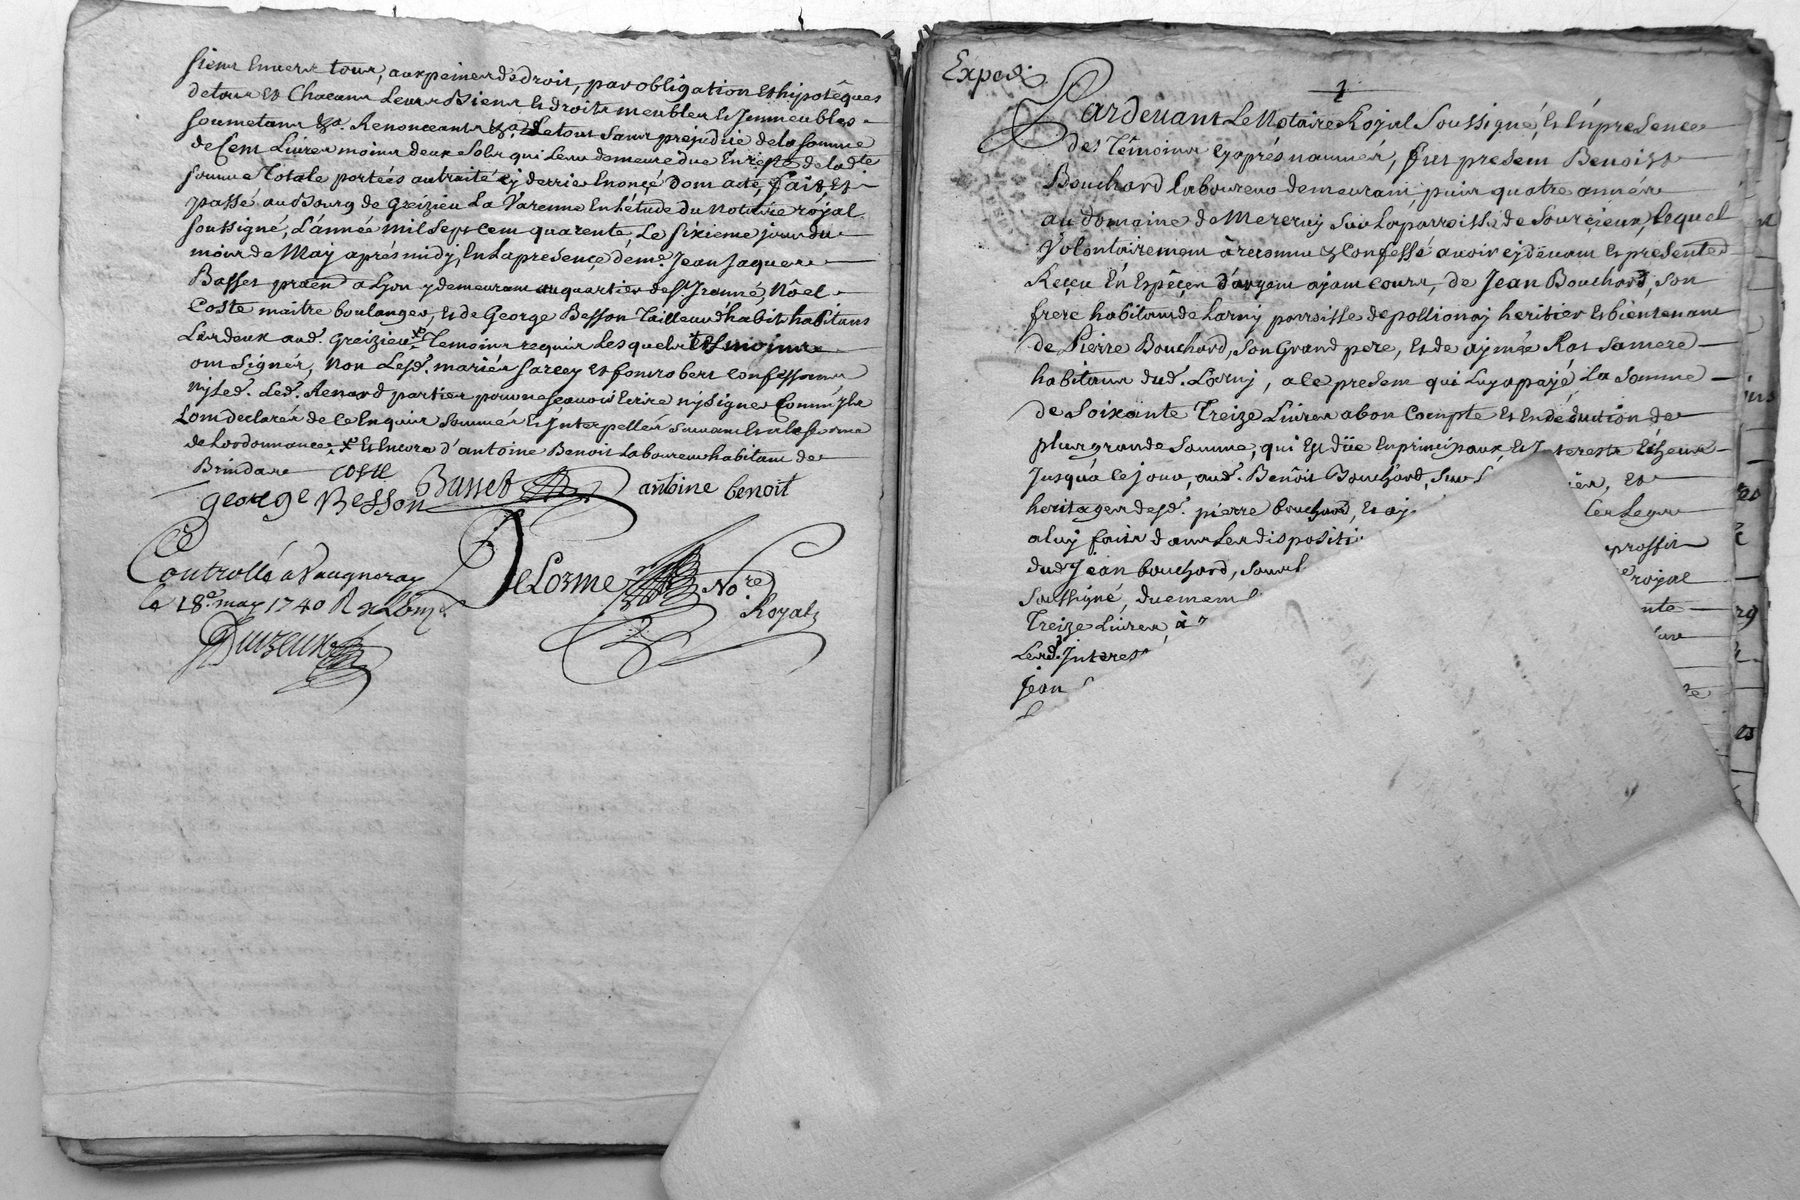 siens envers tous, aux peines de droit, par obligation et hipotêques
de tous et chacuns leurs biens et droits meubles et Immeubles
soumetans &a. Renonceants &a. Le tout sans prejudice de la somme
de Cent Livres moins deux sols qui leur demeure due En reste de lad.te
somme Totale portées au traité cy derrie Enoncé dont acte, fait et
passé au Bourg de Greizieu La Varenne En l'étude du Notaire royal
soussigné, L'année mil sept cent quarente Le sixieme jour du
mois de May aprés midy, En la presence de me. Jean Jaques
Basset praen a Lyon y demeurant au quartier de St. Irenné, Nôel
Coste maitre boulanger, et de George Besson Tailleur d'habit habitans
Les deux aud. Greizieu × Temoins requis Lesquels témoins
ont signés, Non Lesd. mariés sarcey et fontrobert confessants
ny Led. Led. Renard parties pour ne sçavoir Ecrire ny signer Comm'ils
L'ont declarés de ce Enquis sommés et Interpellés suivant
de Lordonnance, × et Encore d'antoine Benoit Laboureur habitant de
Brindas
coste
george Besson Basset antoine benoit
Controllé a Vaugneray
le 18e. may 1740
DeLorme No.re
Royal
Exped.
1
Pardevant Le Notaire Royal Soussigné, et En presence
des Têmoins cy aprés nommés, fut present Benoist
Bouchard laboureur demeurant, puis quatre années
au domaine de Mereruy sur La parroisse de Sourcieux, Lequel
Volontairement à reconnu et Confessé avoir cy devant et presentet
Reçeu En Espêces d'argent ayant cours, de Jean Bouchard, son
frere habitant de Larny parroisse de pollionay heritier et bientenant
de Pierre Bouchard, son Grand pere, et de aymée Rat sa mere
habitans dud. Larny, a ce present qui Luy a payé La somme
de Soixante Treize Livres a bon Compte et En deduction de
plus grande somme, qui Est düe En principaux et Interests Echeus
Jusqu'a ce jour, aud. Benôit Bouchard, sur
heritages desd. pierre bouchard, et ay Les Legs
a luy faits dans Les dispositi proffit
dud Jean bouchard, royal
soussigné, duement
Treize Livres, à
Lesd. Interest
Jean